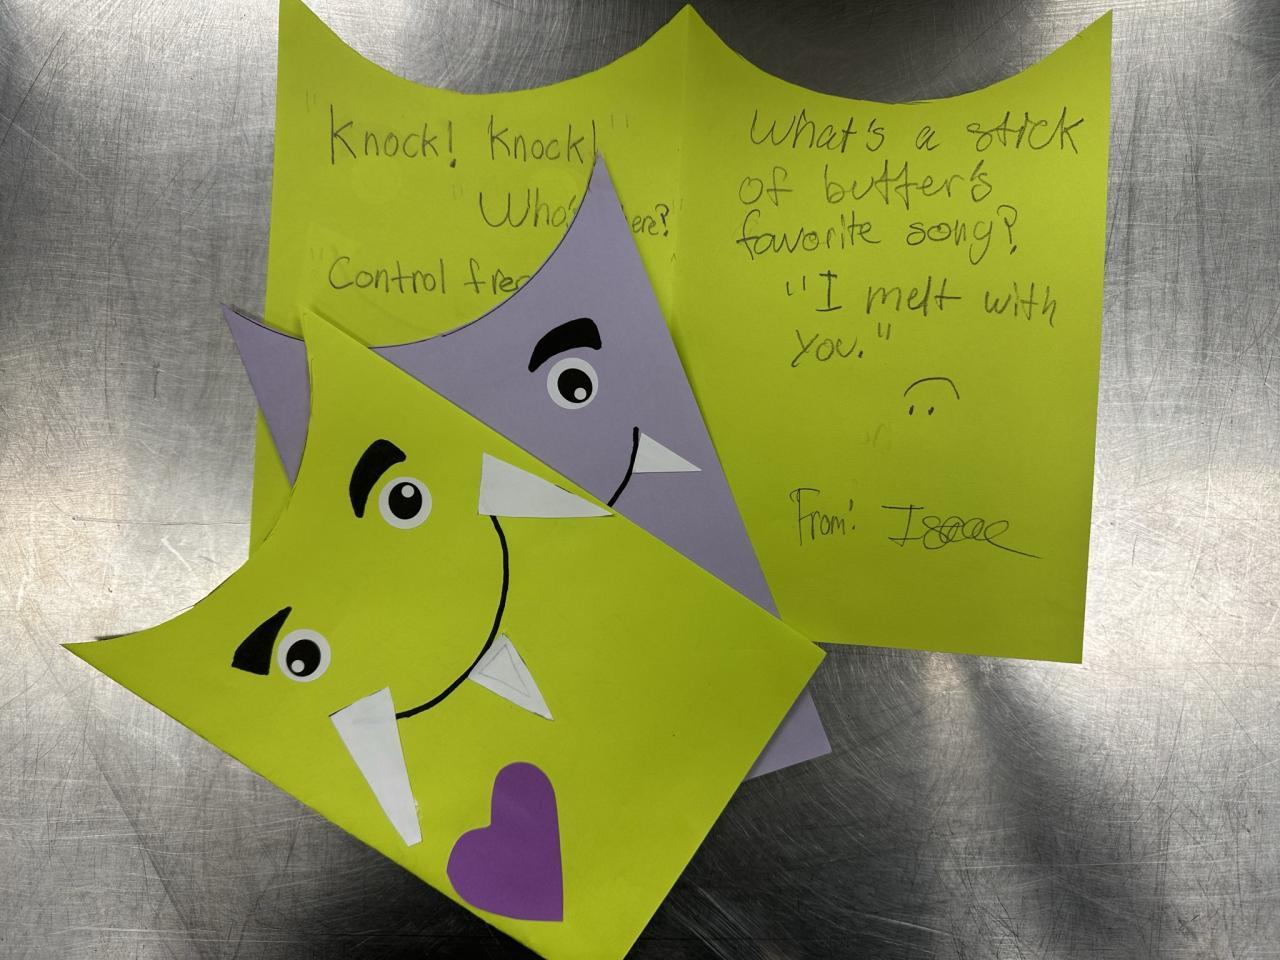 "Knock! Knock!"
"Who's ere?"
"Control frea
What's a stick
of butter's
favorite song?
"I melt with
you."
From: Isaac